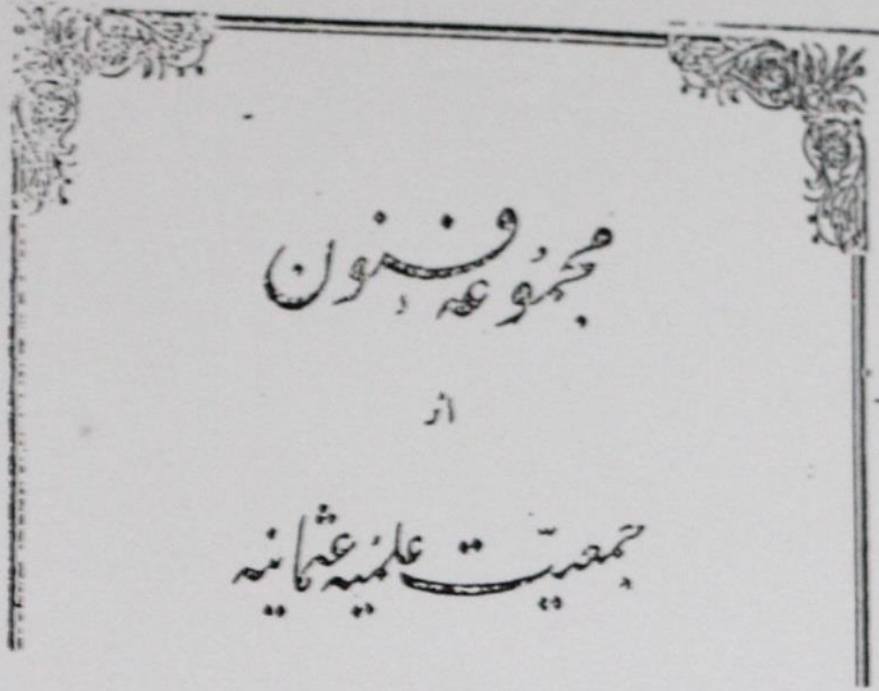 مجموعهٔ فنون
اثر
جمعیت علمیه عثمانیه